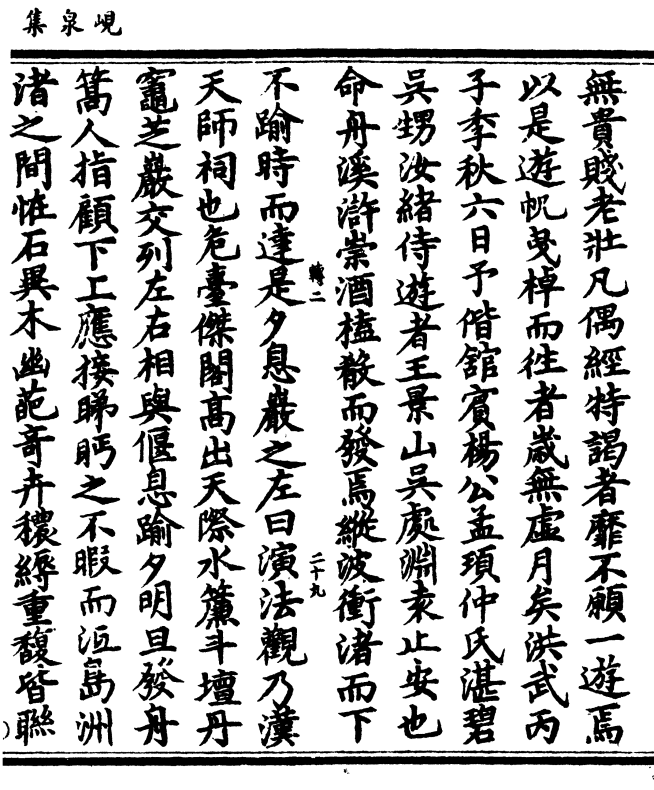 峴泉集
無貴賤老壯凡偶經特謁者靡不願一遊焉
以是遊帆曳棹而徃者歲無虛月矣洪武丙
子季秋六日予偕舘賓楊公孟頊仲氏湛碧
吳甥汝緒侍遊者王景山吳處淵袁止安也
命舟溪滸崇酒榼殽而發焉縱波衝渚而下
轉二
二十九
不踰時而達是夕息巖之左曰演法觀乃漢
天師祠也危臺傑閣髙出天際水簾斗壇丹
竈芝巖交列左右相與偃息踰夕明旦發舟
篙人指顧下上應接睇眄之不暇而沍島洲
渚之間恠石異木幽葩奇卉穠縟重馥皆聯